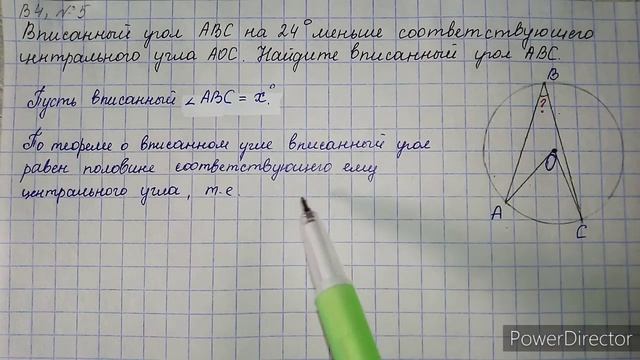 В4, №5
Вписанный угол АВС на 24° меньше соответствующего
центрального угла АОС. Найдите вписанный угол АВС.
Пусть вписанный ∠АВС = x°
По теореме о вписанном угле вписанный угол
равен половине соответствующего ему
центрального угла, т.е.
В
?
О
А
С
PowerDirector